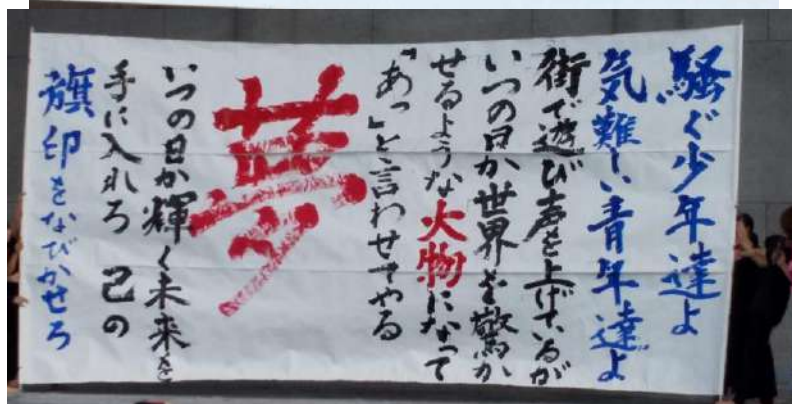 騒ぐ少年達よ
気難しい青年達よ
街で遊び声を上げているが
いつの日か世界を驚か
せるような大物になって
「あっ」と言わせてやる
夢
いつの日か輝く未来を
手に入れろ 己の
旗印をなびかせろ